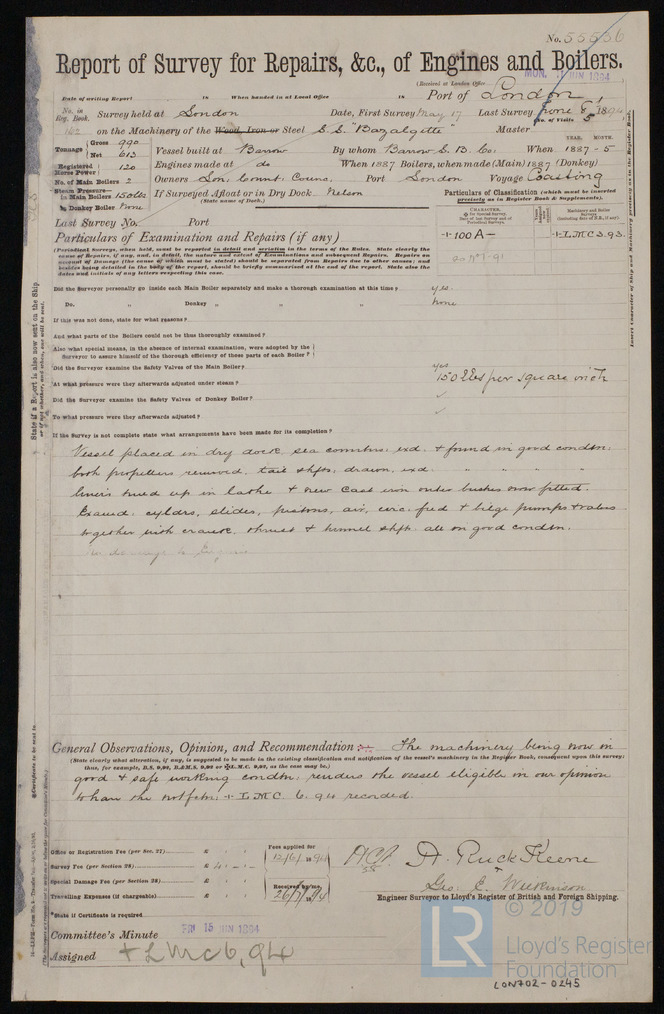 No. 55556
Report of Survey for Repairs, &c., of Engines and Boilers.
(Received at London Office MON. 11 JUN 1894
Date of writing Report 18 When handed in at Local Office 18 Port of London
No. in Reg. Book. Survey held at London Date, First Survey May 17 Last Survey June 8 1894
No. of Visits 5
on the Machinery of the Wood, Iron or Steel S.S. "Bazalgette" Master
Tonnage Gross 990
Net 613
Vessel built at Barrow By whom Barrow S. B. Co. When 1887 - 5
YEAR. MONTH.
Registered Horse Power 120
Engines made at do When 1887 Boilers, when made (Main) 1887 (Donkey)
No. of Main Boilers 2
Owners Lon. Count. Counc. Port London Voyage Coasting
Steam Pressure in Main Boilers 150 lbs
If Surveyed Afloat or in Dry Dock Nelson
(State name of Dock.)
in Donkey Boiler None
Particulars of Classification (which must be inserted precisely as in Register Book & Supplements).
Last Survey No. Port
CHARACTER.
Machinery and Boiler Surveys
+ 100 A — + LMC 3.93.
Particulars of Examination and Repairs (if any)
(Periodical Surveys, when held, must be reported in detail and seriatim in the terms of the Rules. State clearly the cause of Repairs, if any, and, in detail, the nature and extent of Examinations and subsequent Repairs. Repairs on account of Damage (the cause of which must be stated) should be separated from Repairs due to other causes; and besides being detailed in the body of the report, should be briefly summarised at the end of the report. State also the dates and initials of any letters respecting this case.
Did the Surveyor personally go inside each Main Boiler separately and make a thorough examination at this time? yes.
Do. " Donkey " " " none
If this was not done, state for what reasons?
And what parts of the Boilers could not be thus thoroughly examined?
Also what special means, in the absence of internal examination, were adopted by the Surveyor to assure himself of the thorough efficiency of those parts of each Boiler?
Did the Surveyor examine the Safety Valves of the Main Boiler? yes
At what pressure were they afterwards adjusted under steam? 150 lbs per square inch
Did the Surveyor examine the Safety Valves of Donkey Boiler?
To what pressure were they afterwards adjusted?
If the Survey is not complete state what arrangements have been made for its completion?
Vessel placed in dry dock sea connctns: exd. & found in good condtn:
both propellers removed, tail shfts: drawn, exd. " " " "
liners trued up in lathe & new cast iron outer bushes now fitted.
Examd. cyldrs, slides, pistons, air, circ. feed & bilge pumps & valves
together with crank, thrust & tunnel shfts. all in good condtn.
General Observations, Opinion, and Recommendation:— The machinery being now in
(State clearly what alteration, if any, is suggested to be made in the existing classification and notification of the vessel's machinery in the Register Book, consequent upon this survey; thus, for example, B.S. 9,92, B.&M.S. 9,92 or ✠L.M.C. 9,92, as the case may be.)
good & safe working condtn. renders the vessel eligible in our opinion
to have the notfctn: + LMC 6.94 recorded.
Office or Registration Fee (per Sec. 27) £
Fees applied for
Survey Fee (per Section 28) £ 4 : - : -
12/6/1894
Special Damage Fee (per Section 28) £
Received by me,
Travelling Expenses (if chargeable) £
26/7/1894
A. Ruck Keene
Geo. E. Wilkinson
Engineer Surveyor to Lloyd's Register of British and Foreign Shipping.
*State if Certificate is required
Committee's Minute FRI 15 JUN 1894
Assigned + LMC 6,94
© 2019
LR
Lloyd's Register
Foundation
LON702-0245
State if a Report is also now sent on the Ship.